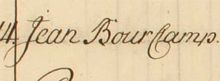 4. Jean Bourclamp.